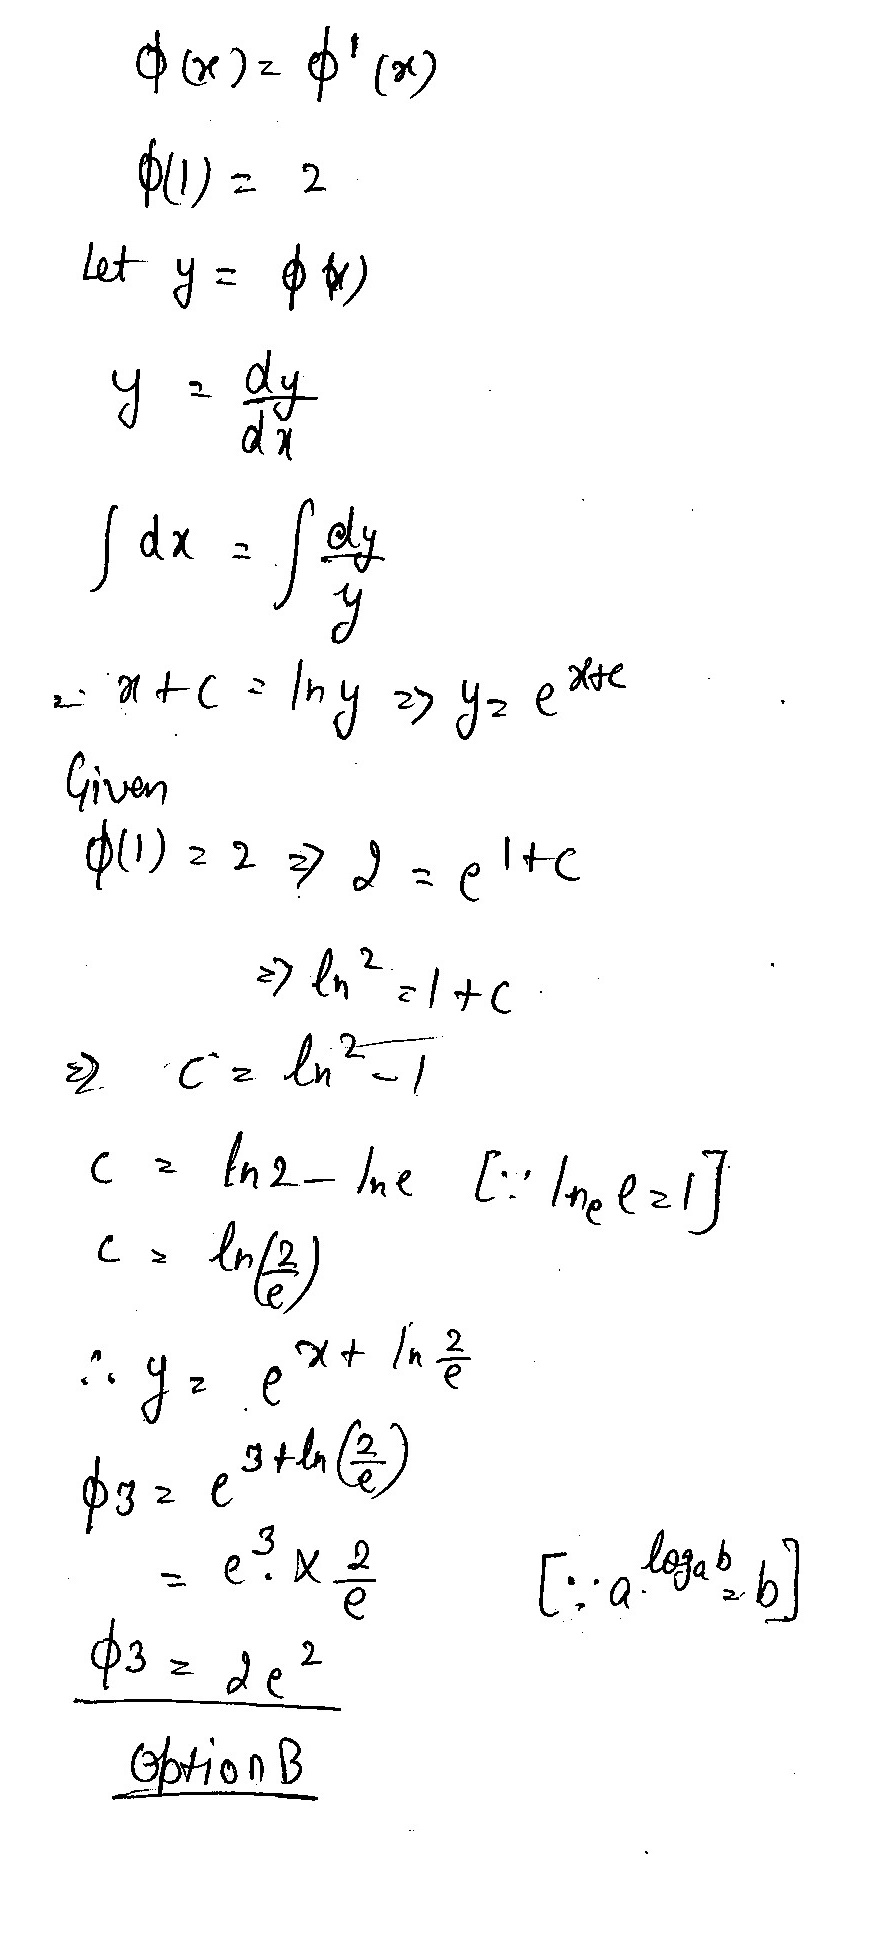 ϕ(x) = ϕ'(x)
ϕ(1) = 2
Let y = ϕ(x)
y = dy/dx
∫dx = ∫dy/y
= x + c = ln y => y = e^(x+c)
Given
ϕ(1) = 2 => 2 = e^(1+c)
=> ln 2 = 1 + c
=> c = ln 2 - 1
c = ln 2 - ln e [∵ ln_e e = 1]
c = ln(2/e)
∴ y = e^(x + ln 2/e)
ϕ3 = e^(3 + ln(2/e))
= e^3 . × 2/e [∵ a^(log_a b) = b]
ϕ3 = 2e^2
Option B